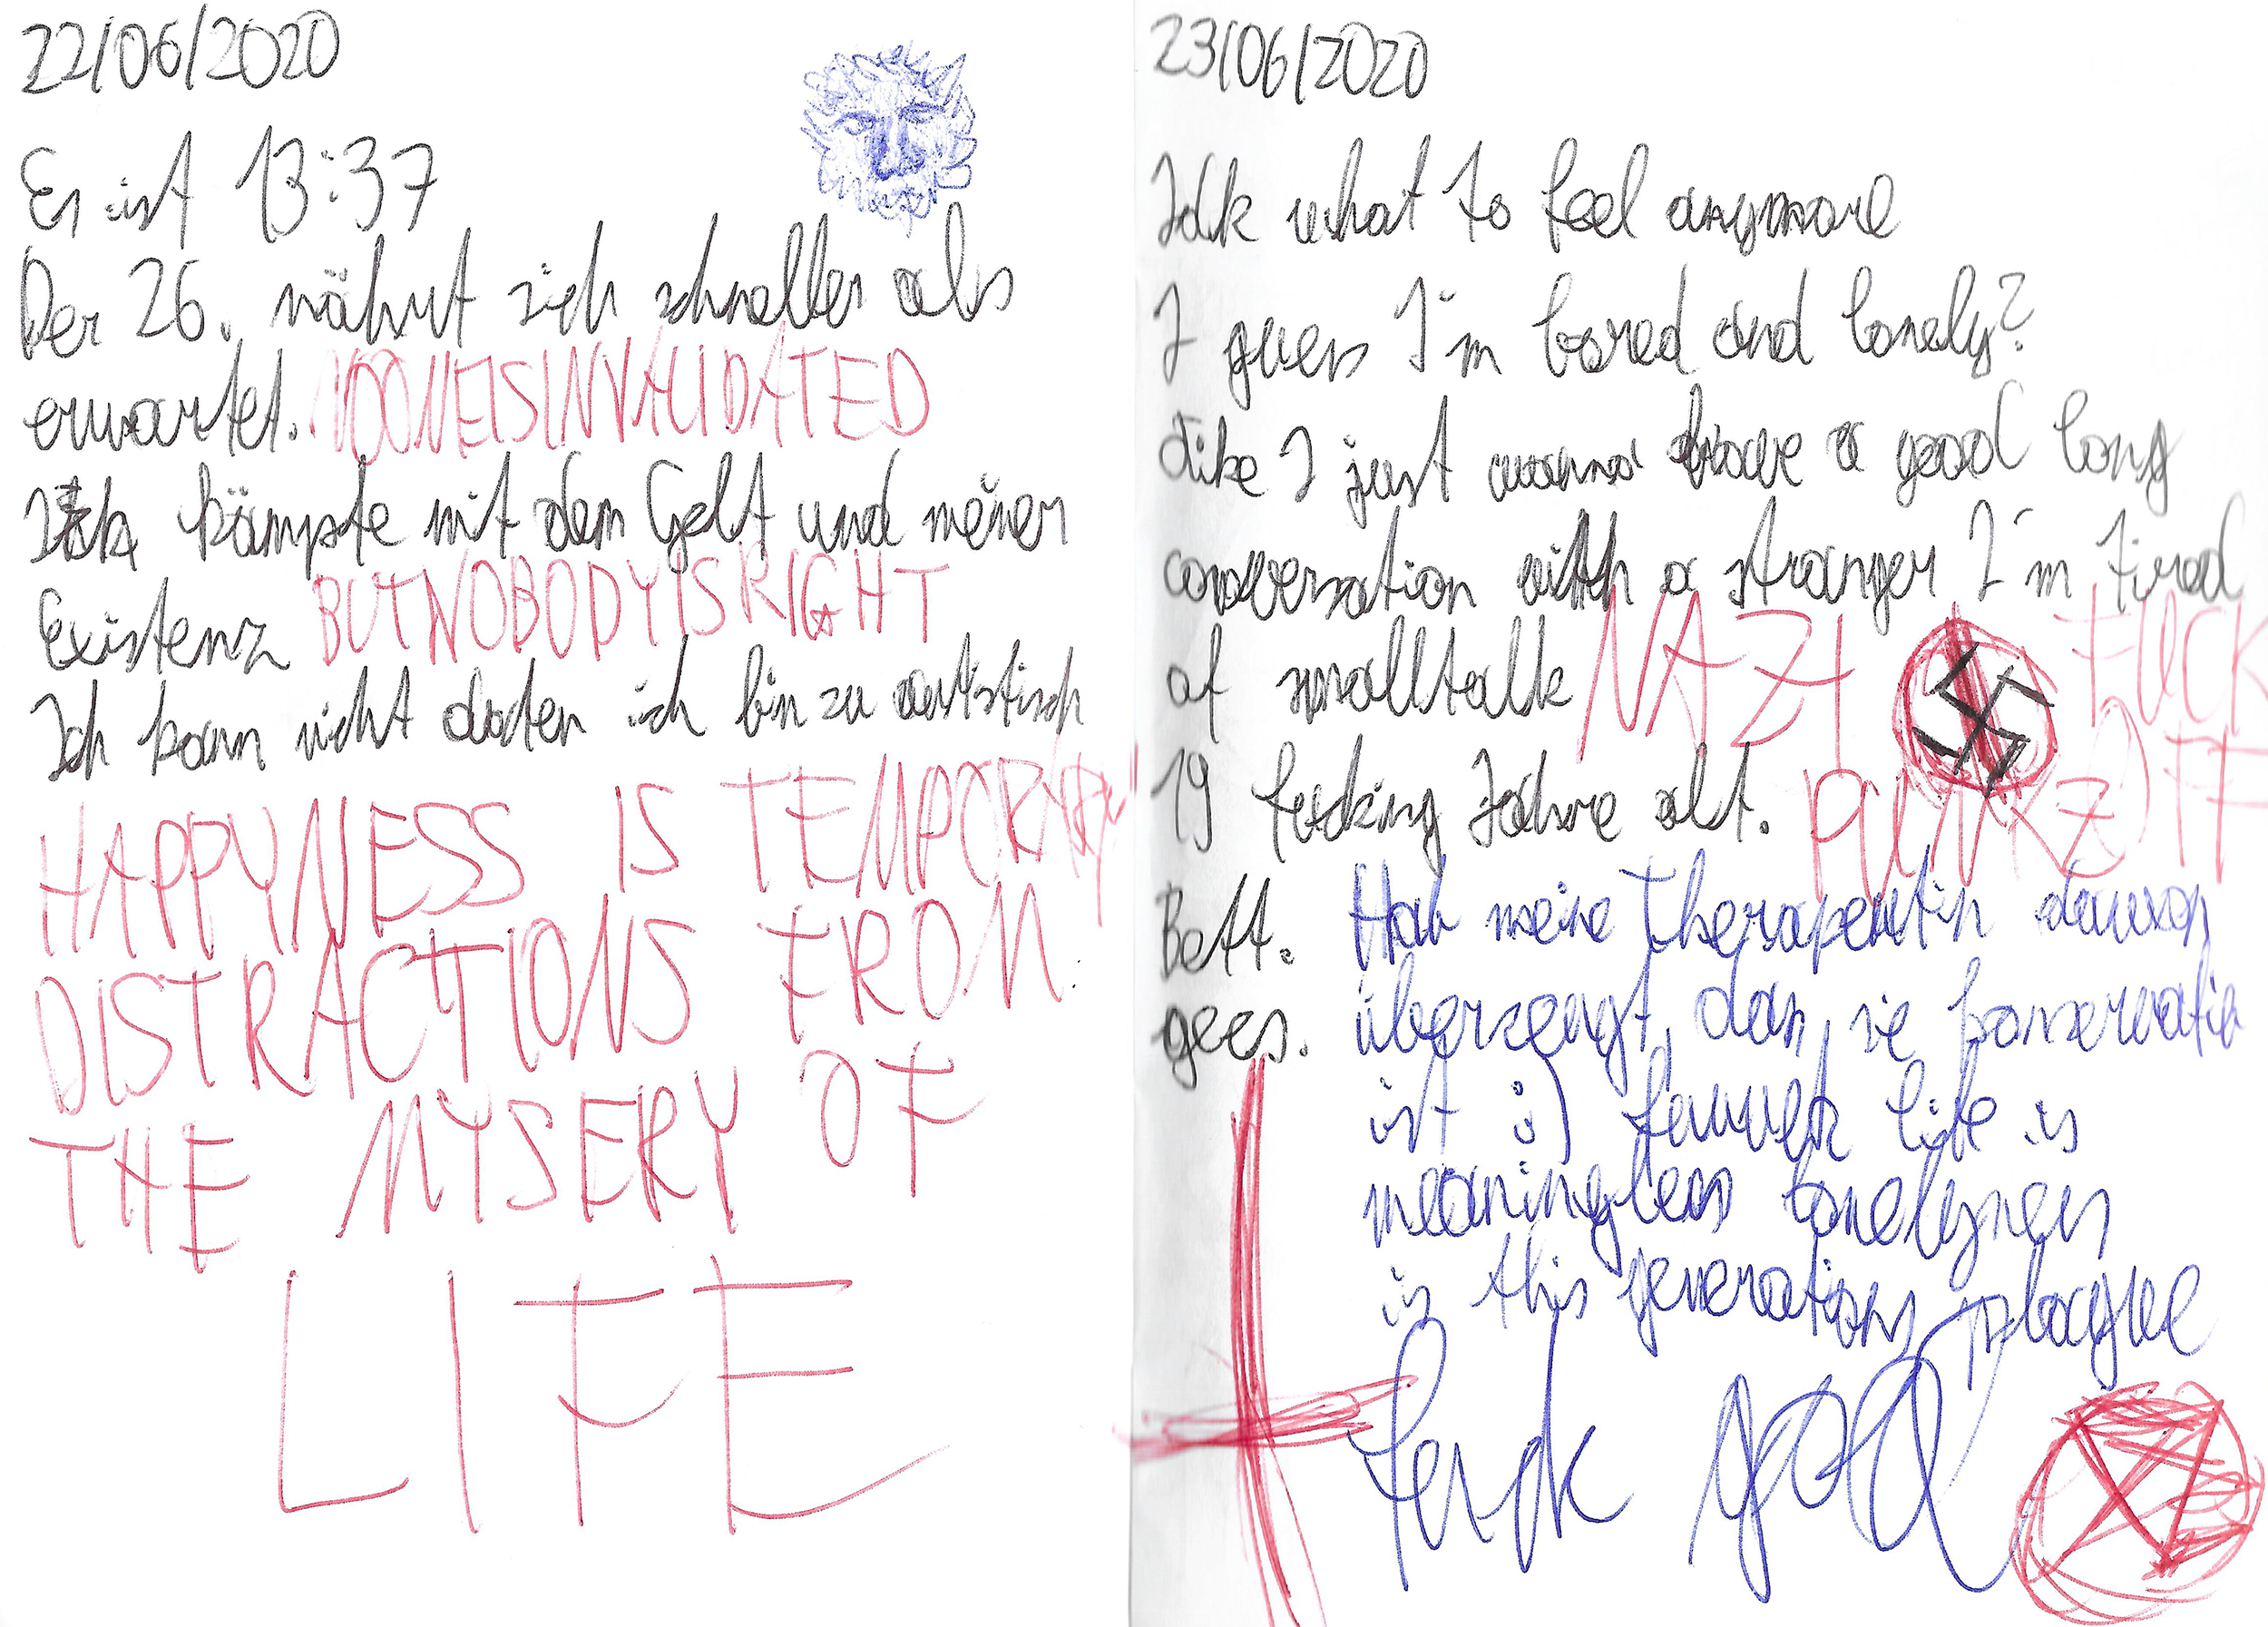 22/06/2020
Es ist 13:37
Der 26. nährt sich schneller als
erwartet. NOONEISINVALIDATED
Ich kämpfe mit dem Gelt und meiner
Existenz BUTNOBODYISRIGHT
Ich kann nicht daten ich bin zu autistisch
HAPPYNESS IS TEMPORARY
DISTRACTIONS FROM
THE MYSERY OF
LIFE
23/06/2020
Idk what to feel anymore
I guess I'm bored and lonely?
Like I just wanna have a good long
conversation with a stranger I'm tired
of smalltalk NAZI FUCK
19 fucking Jahre alt. PUNKZ OFF
Bett. Hab meine Therapeutin davon
gees. überzeugt, dass sie konservativ
ist :) life is
meaningless lonelyness
is this generations plague
fuck god